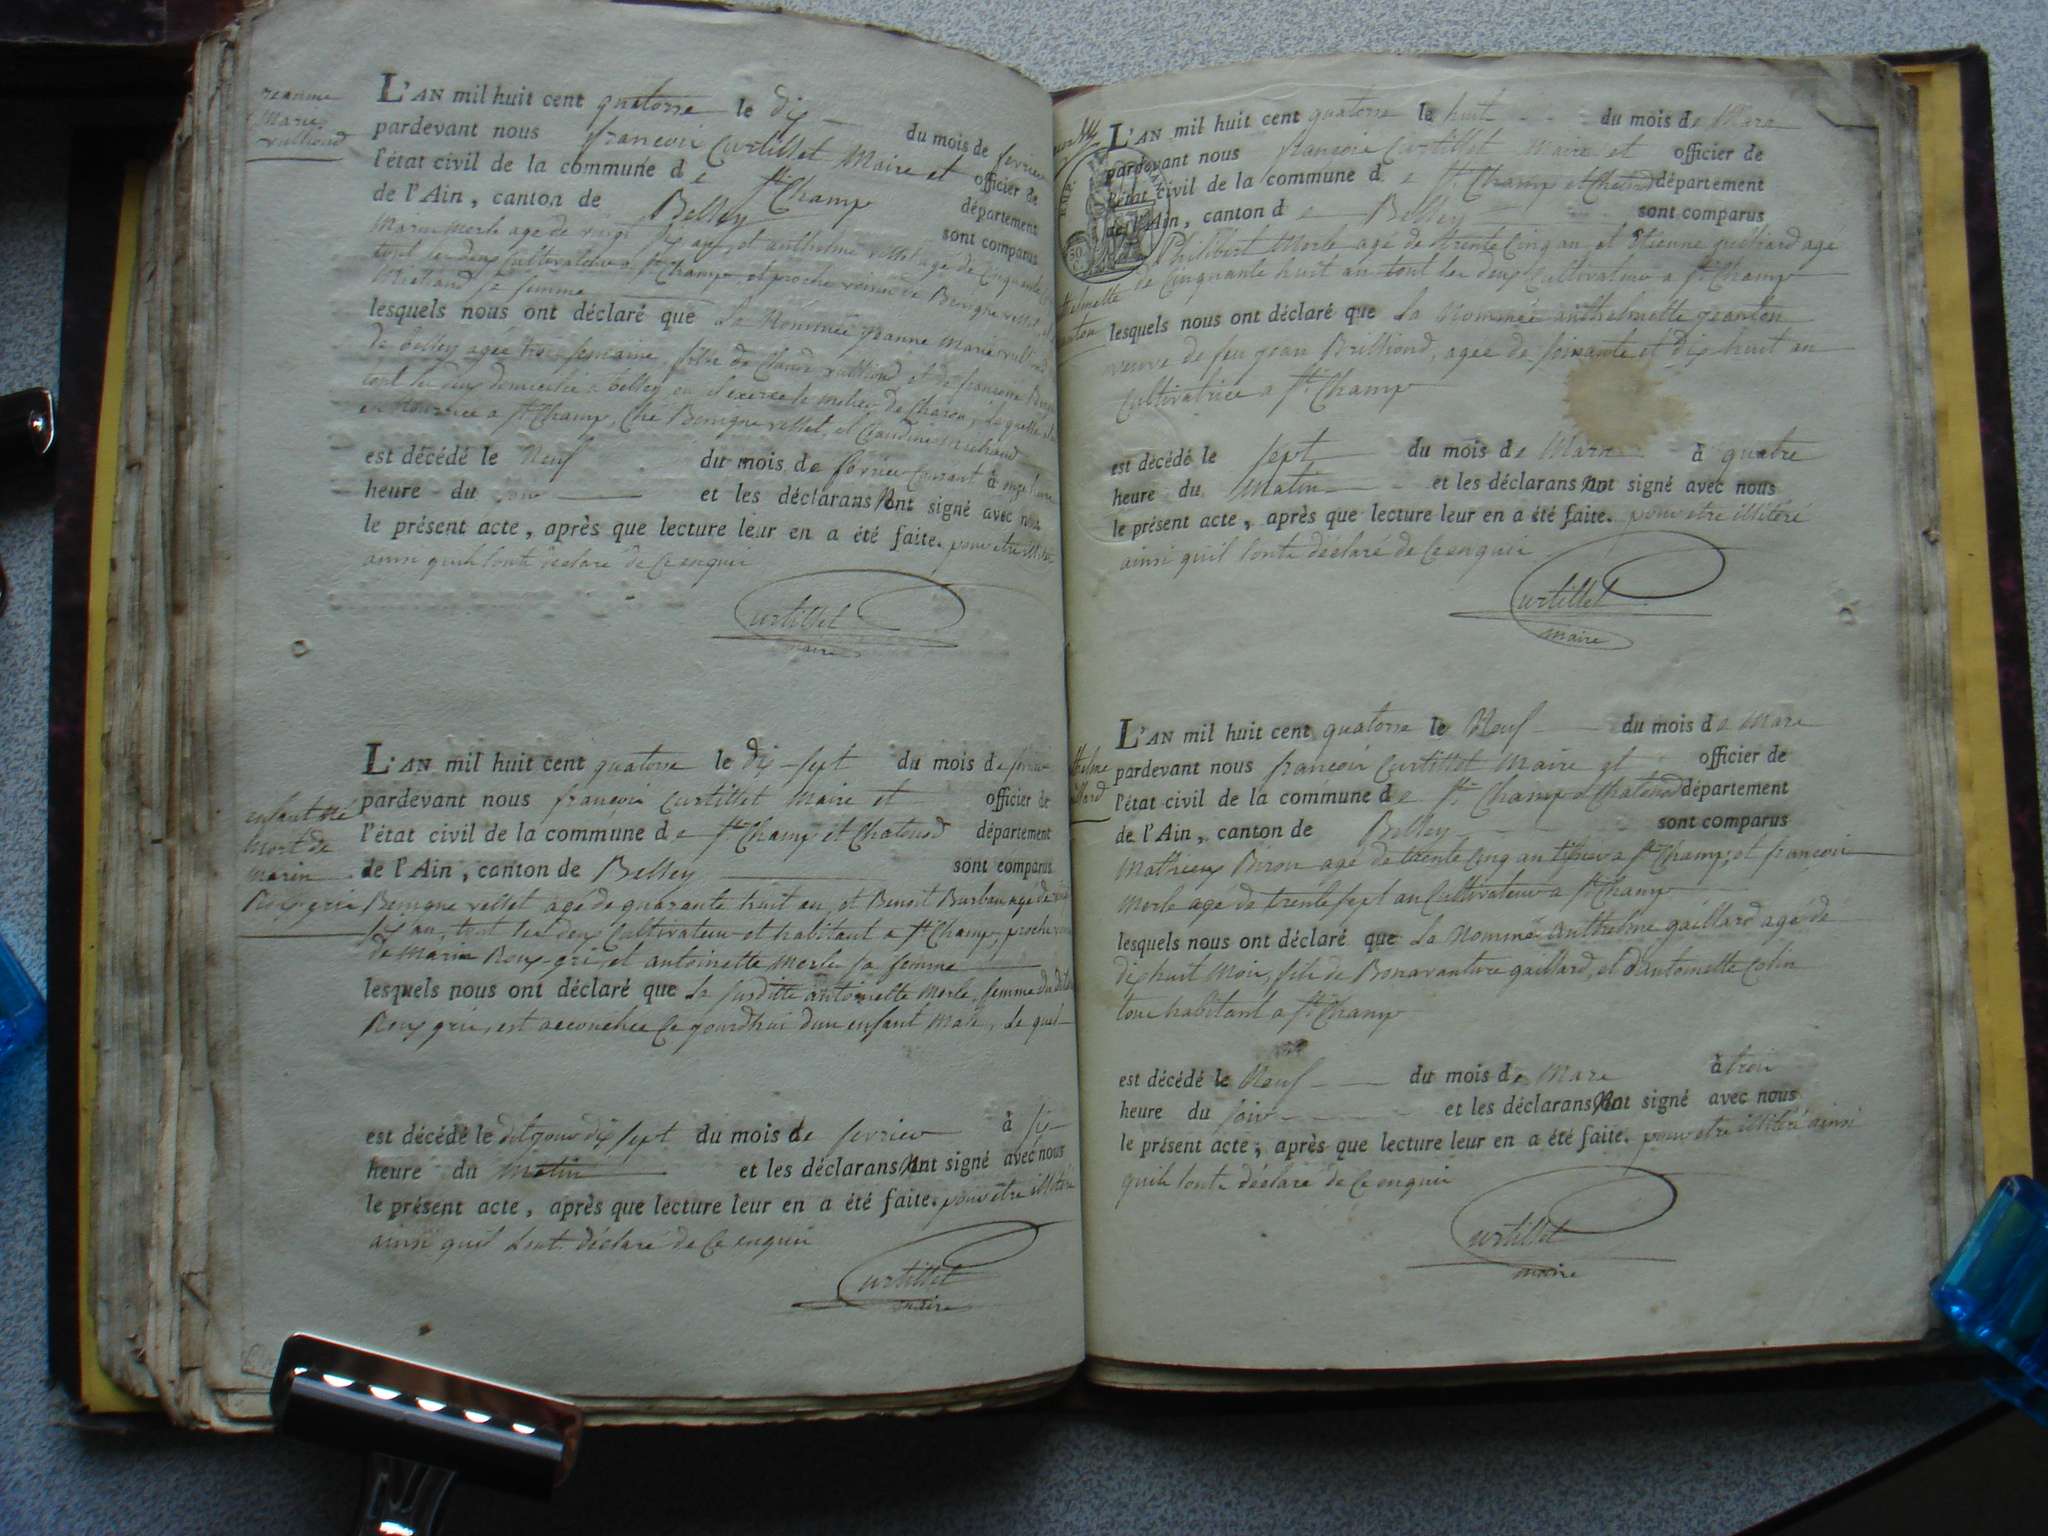 jeanne
Marie
vulliond
L'AN mil huit cent quatorse le dix du mois de fevrier
pardevant nous françois Curtillet Maire et officier de
l'état civil de la commune de St Champ département
de l'Ain, canton de Belley sont comparus
Marin Merle agé de vingt six ans, et anthelme vettet agé de Cinquante
tout les deux Cultivateur a St Champ, et proche voisin de Benigne vettet, et
Michaud sa femme
lesquels nous ont déclaré que la Nommée jeanne Marie vulliond
de belley agée trois semaine, fille de Claude vulliond et de francoise
tout les deux domicilié a belley, ou il exerce le metier de Charon, laquelle
en Nourrice a St Champ, Ché Benigne vettet, et Claudine Michaud
est décédé le Neuf du mois de fevrier Courant à onze heure
heure du soir et les déclarans Nont signé avec nous
le présent acte, après que lecture leur en a été faite. pour etre illiteré
ainsi quils lonts déclaré de Ce enquis
Curtillet
maire
enfant né
mort de
marin
Roux gris
L'AN mil huit cent quatorse le dix-sept du mois de fevrier
pardevant nous françois Curtillet Maire et officier de
l'état civil de la commune de St Champ et Chatonod département
de l'Ain, canton de Belley sont comparus
Benigne vettet agé de quarante huit an, et Benoit Burban agé de vingt
six an, tout les deux Cultivateur et habitant a St Champ, proche voisin
de Marin Roux-gris, et antoinette Merle sa femme
lesquels nous ont déclaré que la susditte antoinette Merle, femme du dit
Roux gris, est accouchée Ce jourdhui dun enfant Male, le quel
est décédé le dit jour dix sept du mois de fevrier à six
heure du Matin et les déclarans Nont signé avec nous
le présent acte, après que lecture leur en a été faite. pour etre illiteré
ainsi quil lont déclaré de Ce enquis
Curtillet
maire
L'AN mil huit cent quatorse le huit du mois de Mars
pardevant nous françois Curtillet Maire et officier de
l'état civil de la commune de St Champ et Chatonod département
de l'Ain, canton de Belley sont comparus
Philibert Merle agé de trente Cinq an, et Etienne guilliard agé
de Cinquante huit an tout les deux Cultivateur a St Champ
lesquels nous ont déclaré que la Nommée anthelmette jeanton
veuve de feu jean Brilliond, agée de soixante et dix huit an
Cultivatrice a St Champ
est décédé le sept du mois de Mars à quatre
heure du Matin et les déclarans Nont signé avec nous
le présent acte, après que lecture leur en a été faite. pour etre illiteré
ainsi quil lonts déclaré de Ce enquis
Curtillet
maire
L'AN mil huit cent quatorse le Neuf du mois de Mars
pardevant nous françois Curtillet Maire et officier de
l'état civil de la commune de St Champ et Chatonod département
de l'Ain, canton de Belley sont comparus
Mathieu Piron agé de trente Cinq an a St Champ, et françois
Merle agé de trente sept an Cultivateur a St Champ
lesquels nous ont déclaré que la Nommé Anthelme gaillard agé de
dix huit Mois, fils de Bonavanture gaillard, et d'antoinette Colin
tous habitant a St Champ
est décédé le Neuf du mois de Mars à trois
heure du soir et les déclarans Nont signé avec nous
le présent acte, après que lecture leur en a été faite. pour etre illiteré ainsi
quils lonts déclaré de Ce enquis
Curtillet
maire